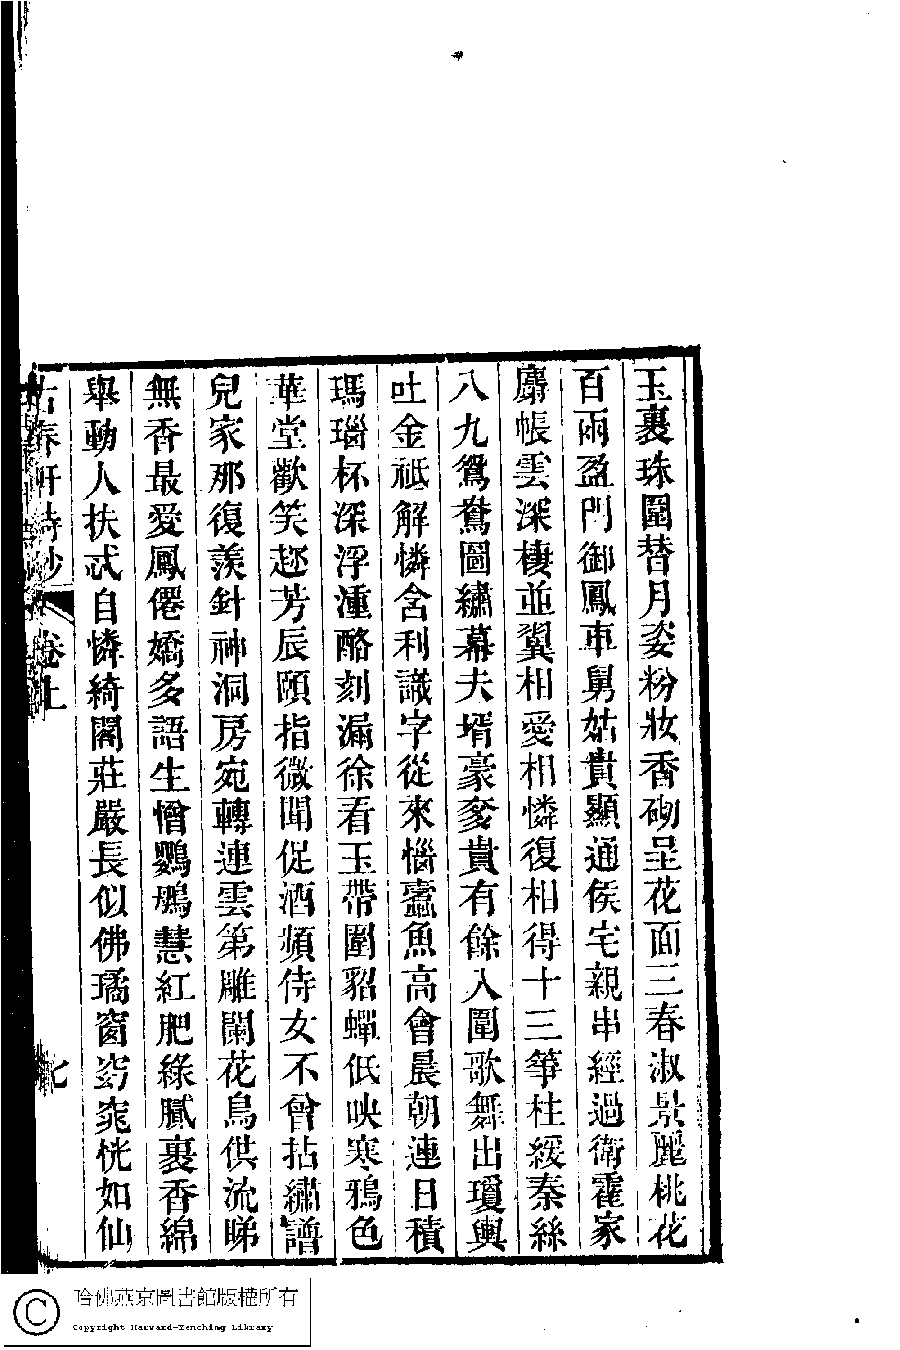 玉裹珠圍替月姿粉妝香砌呈花面三春淑景麗桃花
百兩盈門御鳳車舅姑貴顯通侯宅親串經過衛霍家
麝帳雲深棲並翼相愛相憐復相得十三箏柱緩秦絲
八九鴛鴦圖繡幕夫壻豪奓貴有餘入圍歌舞出瓊輿
吐金祗解憐舍利識字從來惱蠹魚高會晨朝連日積
瑪瑙杯深浮湩酪刻漏徐看玉帶圍貂蟬低映寒鴉色
華堂歡笑趂芳辰頤指微聞促酒頻侍女不曾拈繡譜
兒家那復羨針神洞房宛轉連雲第雕闌花鳥供流睇
無香最愛鳳僊嬌多語生憎鸚鵡慧紅肥綠膩裹香綿
舉動人扶忒自憐綺閣莊嚴長似佛璚窗窈窕恍如仙
古春軒詩鈔 卷上 七
哈佛燕京圖書館版權所有
Copyright Harvard-Yenching Library